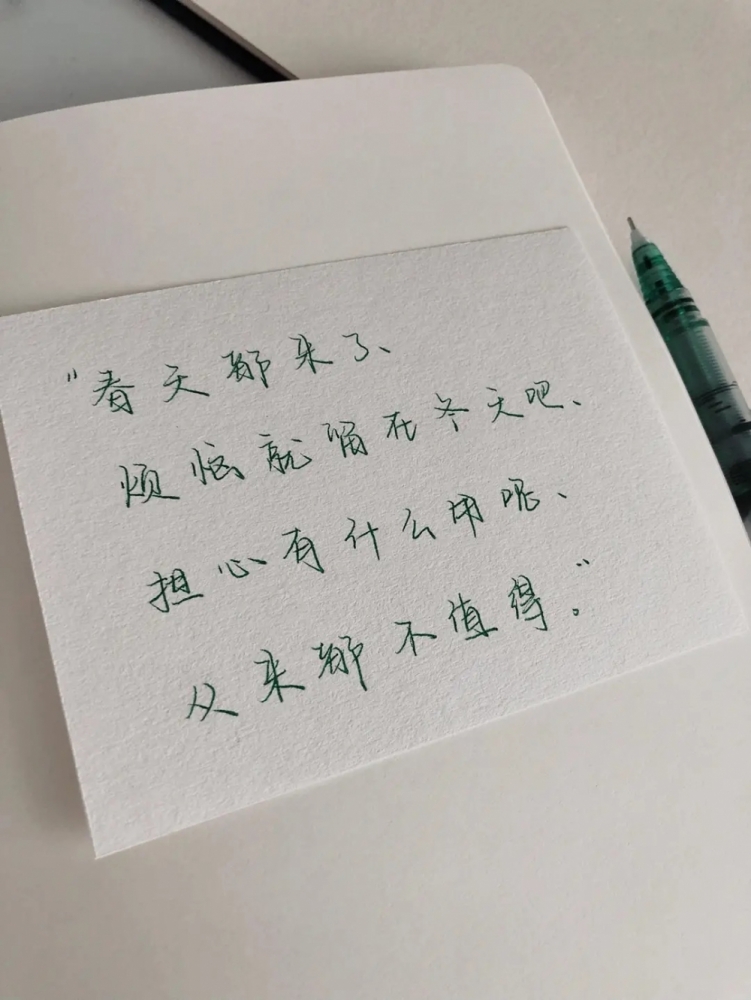 "春天都来了、
烦恼就留在冬天吧、
担心有什么用呢、
从来都不值得。"